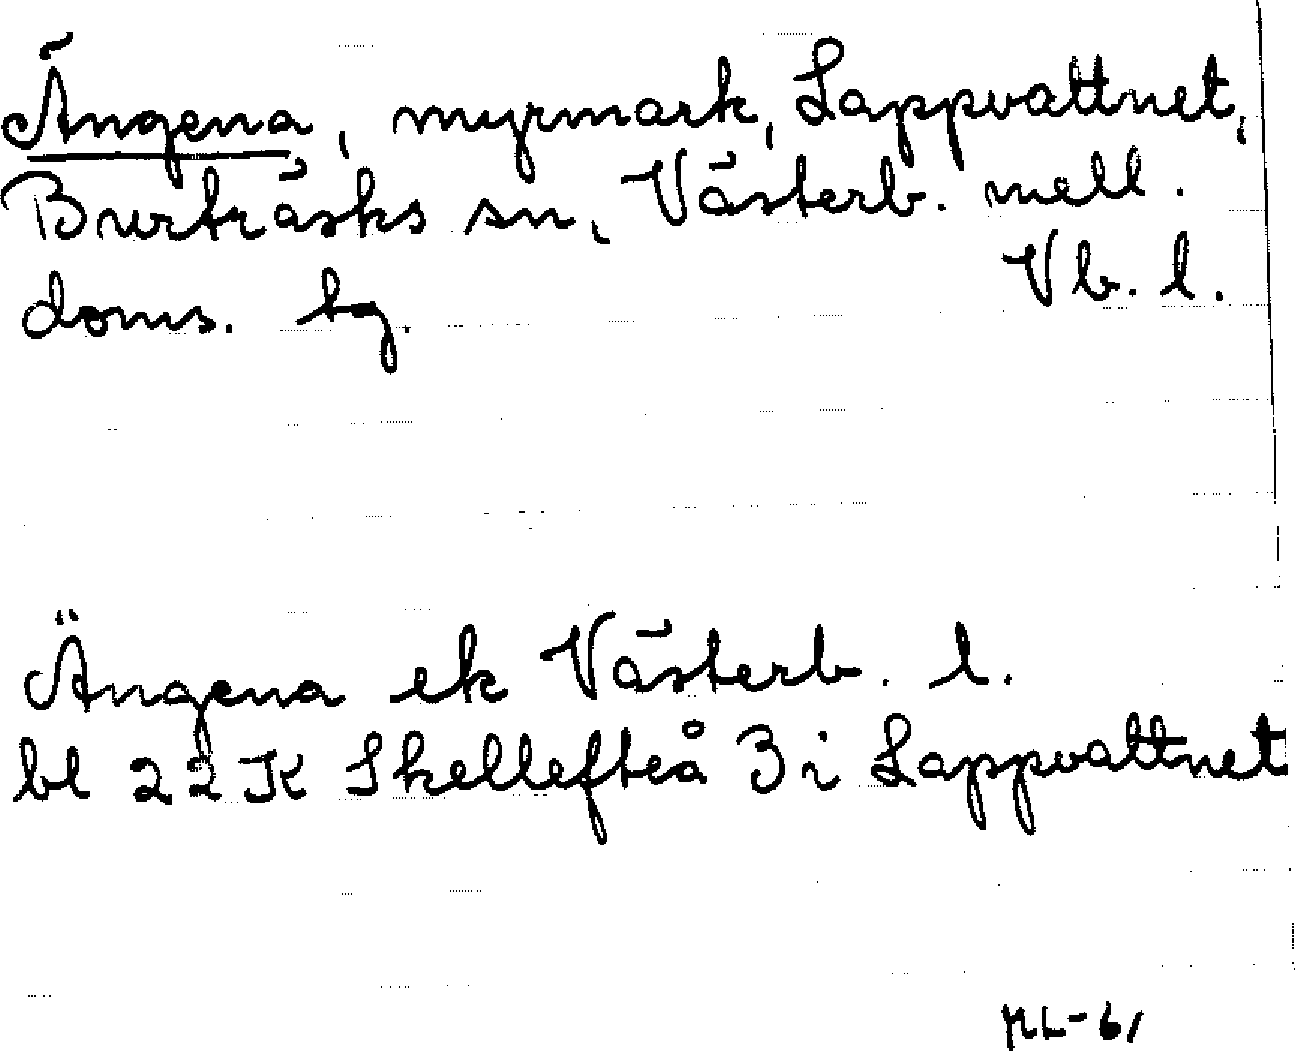 Ängena, myrmark, Lappvattnet,
Burträsks sn, Västerb. mell.
doms. bg. Vb. l.
Ängena ek Västerb. l.
bl 22 K Skellefteå 3 i Lappvattnet
ML-61